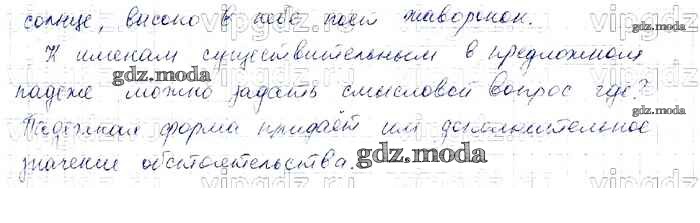 солнце, высоко в небе поёт жаворонок.
К именам существительным в предложном
падеже можно задать смысловой вопрос где?
Падежная форма придаёт им дополнительное
значение обстоятельства.
gdz.moda
gdz.moda
gdz.moda
gdz.moda